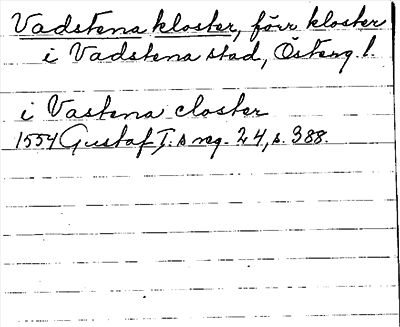 Vadstena kloster, förr kloster
i Vadstena stad, Österg l.
i Vastena closter
1554 Gustaf I:s reg. 24, s. 388.